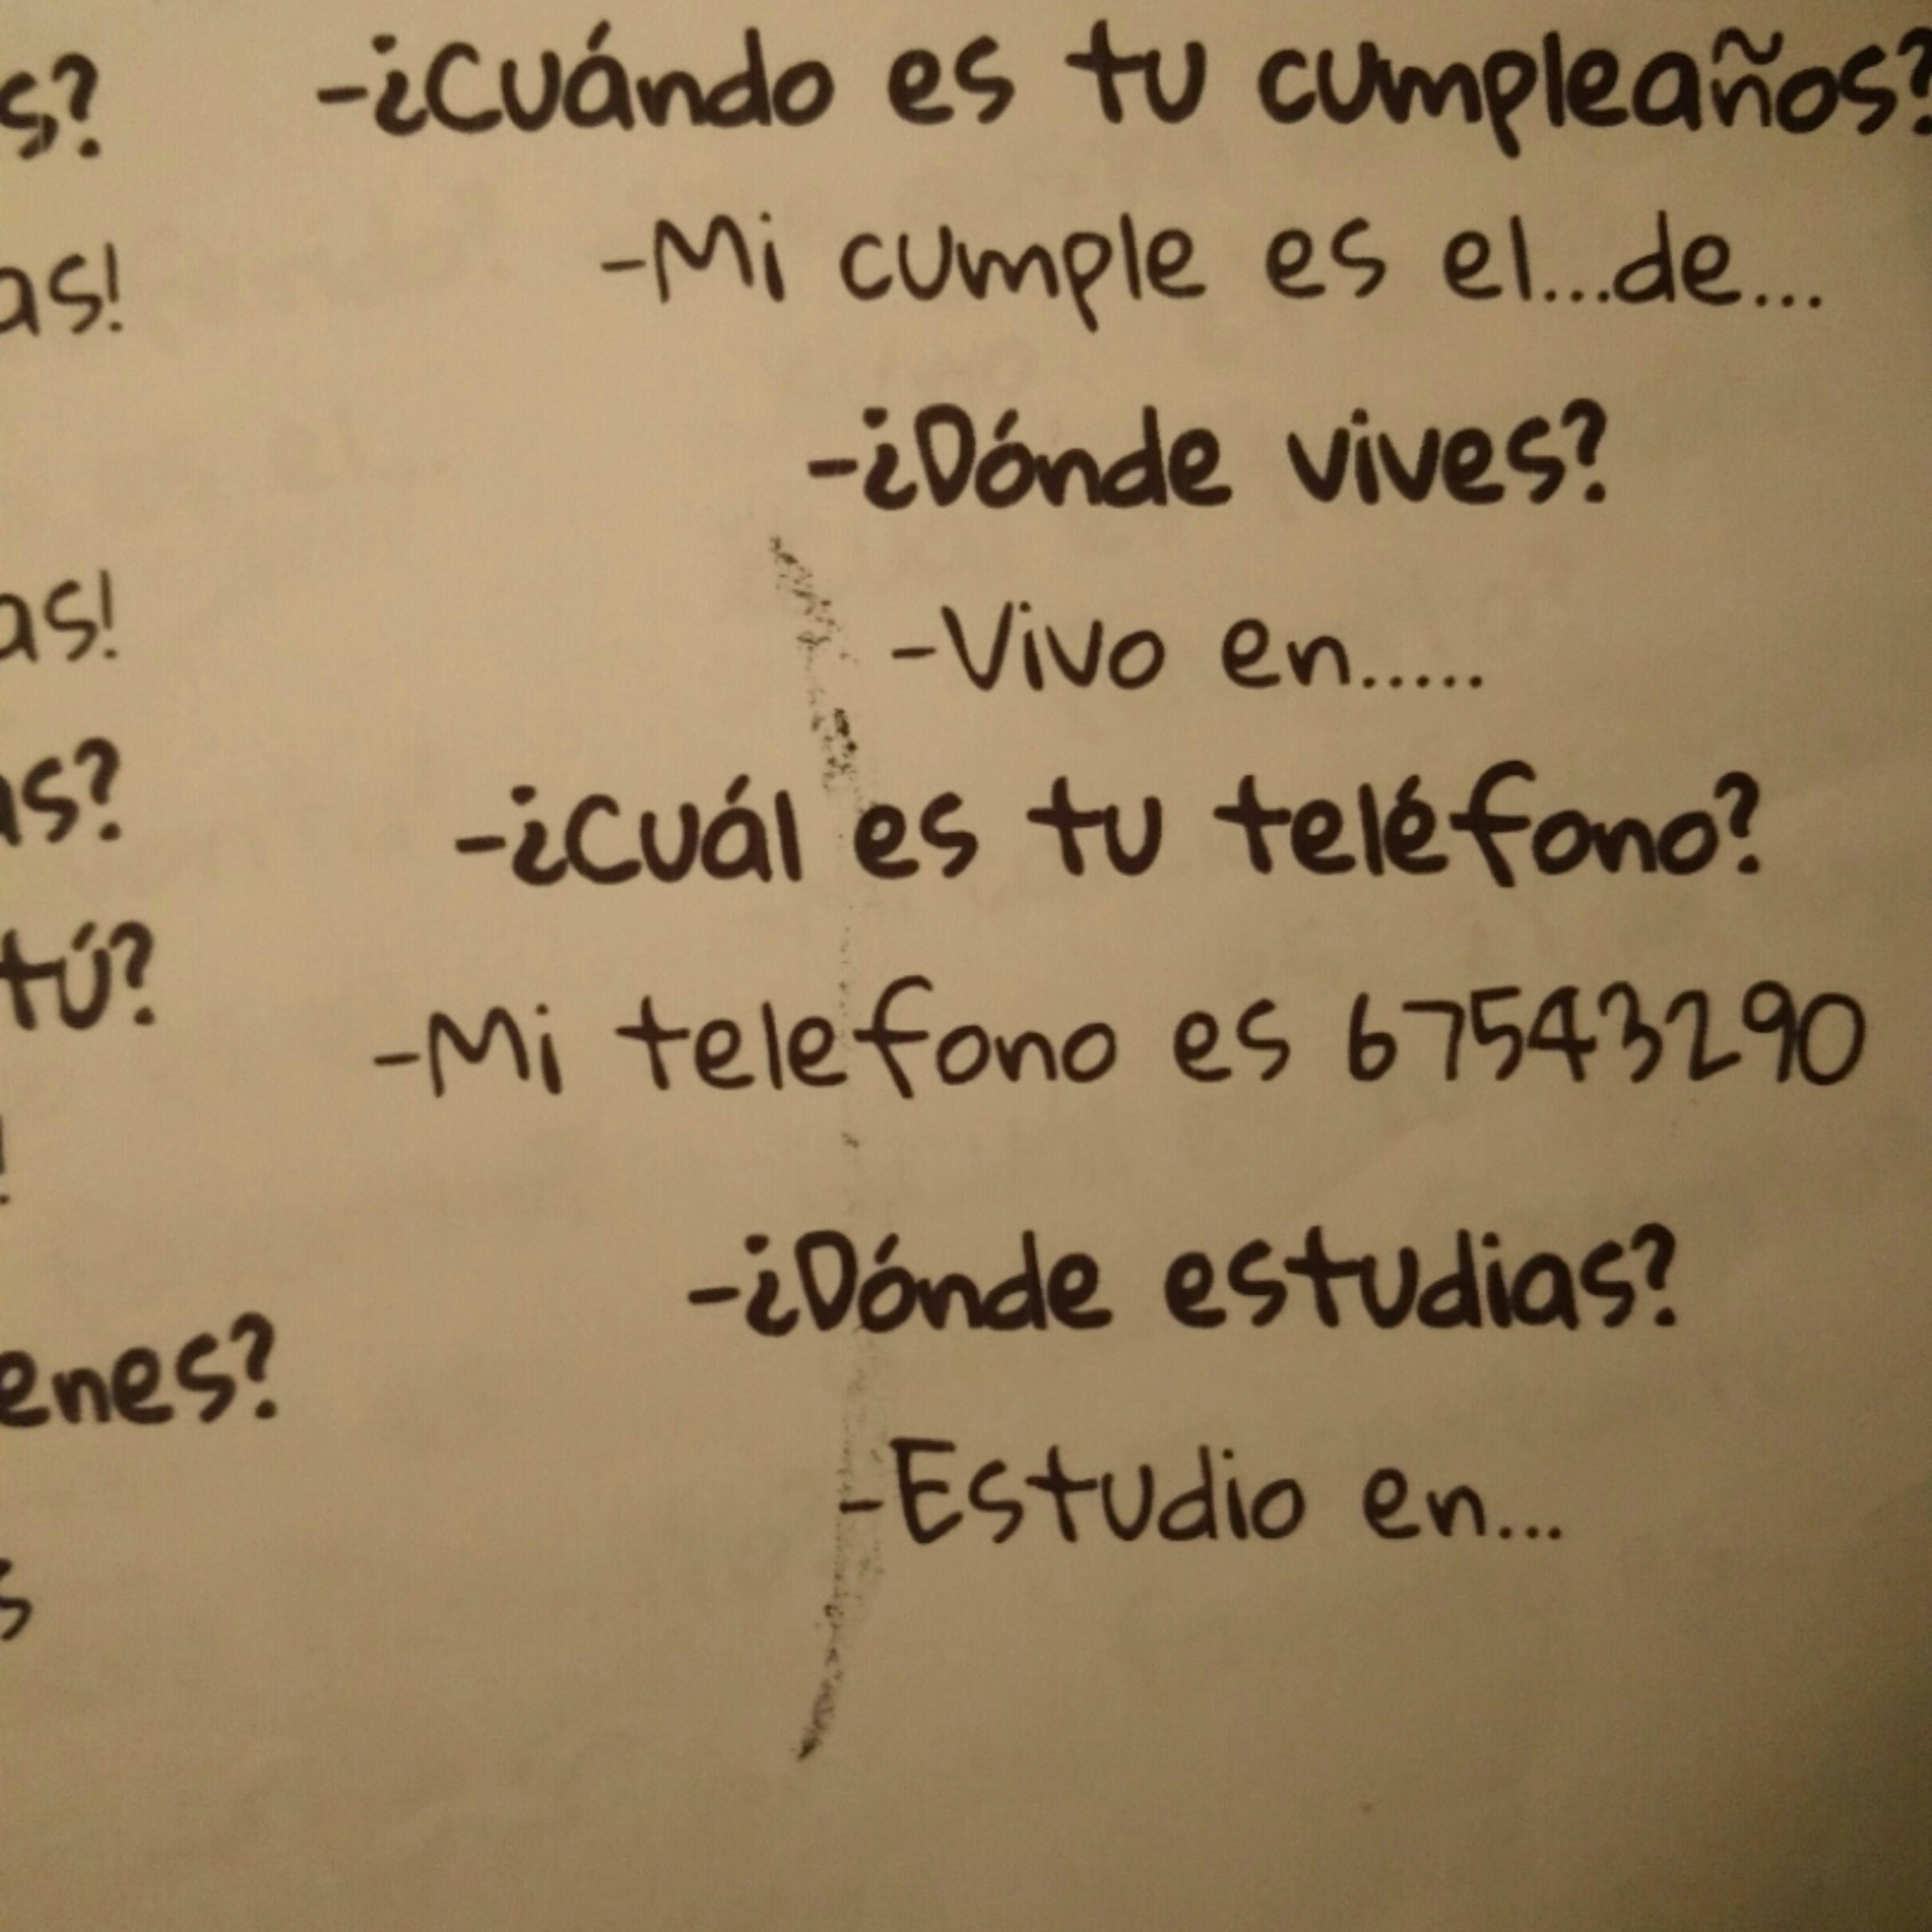 -¿Cuándo es tu cumpleaños?
-Mi cumple es el...de...
-¿Dónde vives?
-Vivo en.....
-¿Cuál es tu teléfono?
tú?
-Mi telefono es 67543290
-¿Dónde estudias?
-Estudio en...